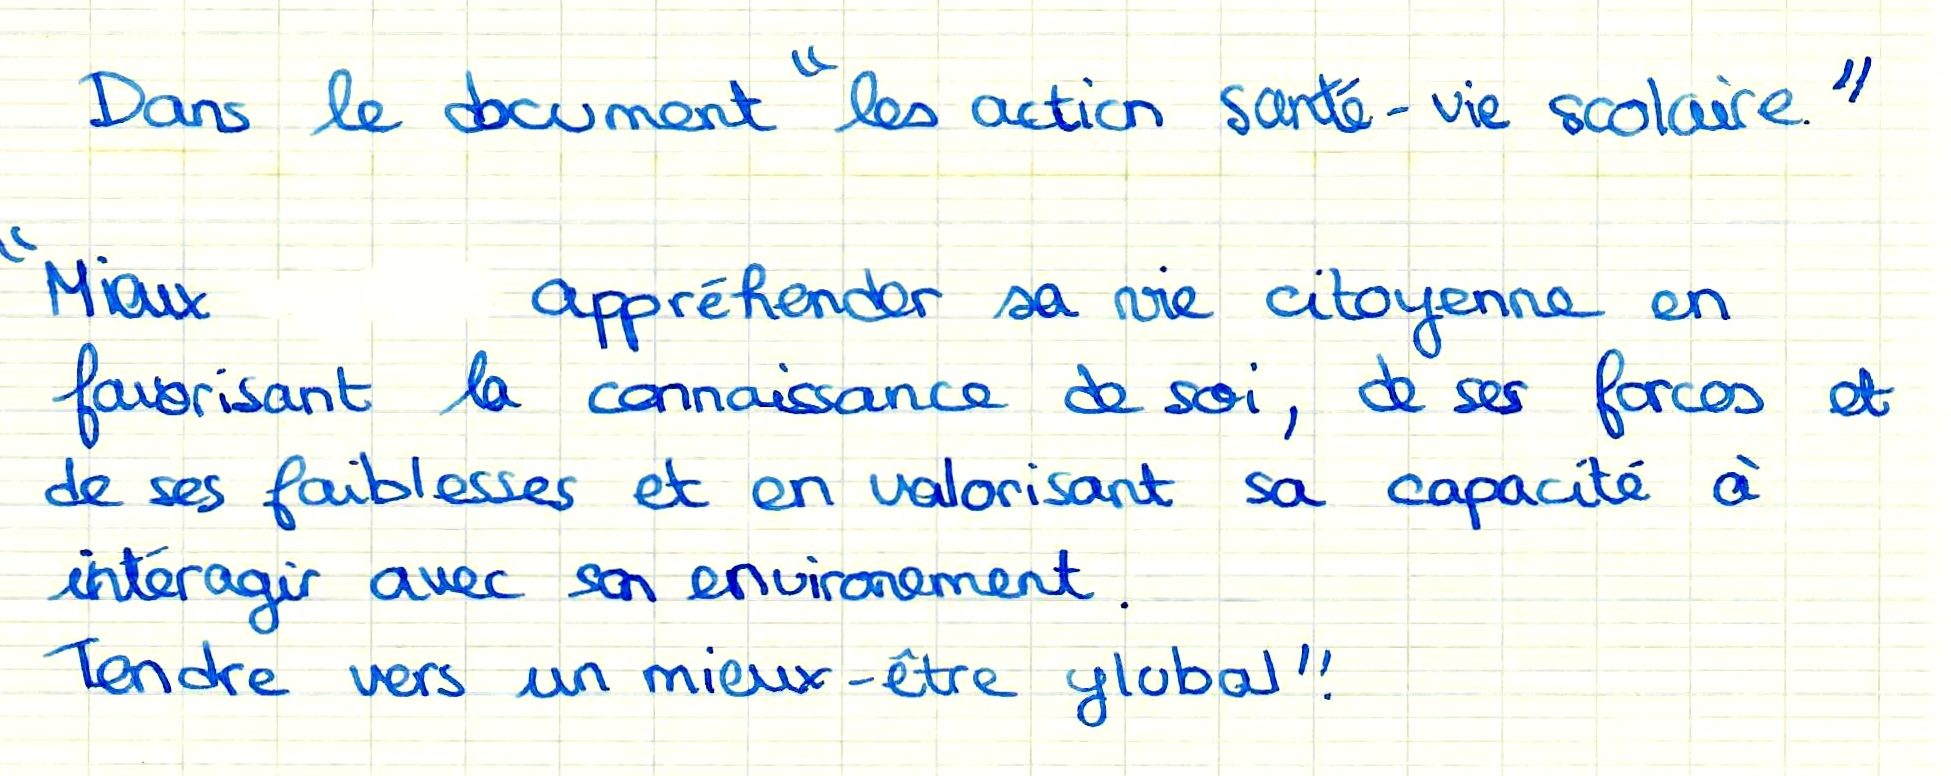 Dans le document "les action santé-vie scolaire."
"Mieux appréhender sa vie citoyenne en
favorisant la connaissance de soi, de ses forces et
de ses faiblesses et en valorisant sa capacité à
intéragir avec son environement.
Tendre vers un mieux-être global"!